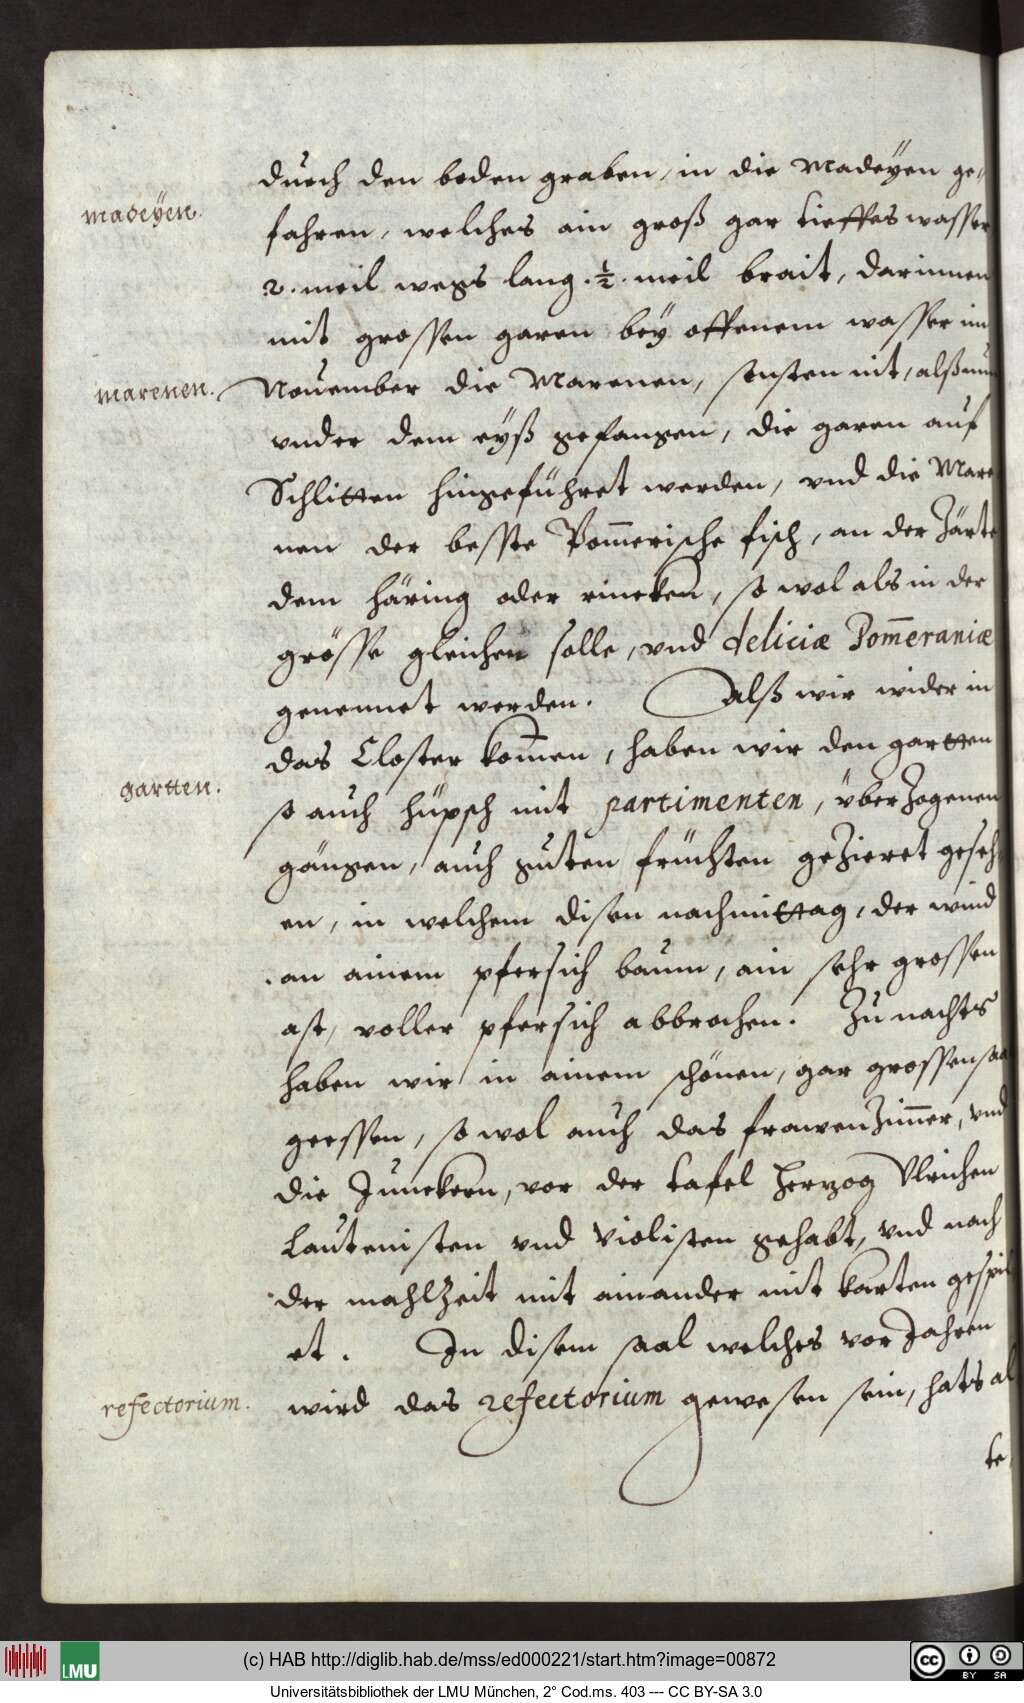 durch den boden graben, in die Madeÿen ge-
madeÿen.
fahren, welches ain groß gar tieffes wasser
2. meil wegs lang. ½. meil brait, darinnen
mit grossen garen beÿ offenem wasser im
marenen.
Nouember die Marenen, sonsten nit, alß nun
vnder dem eyß gefangen, die garen auf
Schlitten hingeführet werden, vnd die Mare
nen der beste Pom̅erische fisch, an der Zärte
dem häring oder rincken, so wol als in der
grösse gleichen solle, vnd deliciæ Pom̅eraniæ
genennet werden. Alß wir wider in
das Closter kom̅en, haben wir den gartten
gartten.
so auch hüpsch mit partimenten, überzogenen
gängen, auch guten früchten gezieret geseh
en, in welchem disen nachmittag, der wind
an ainem pfersich baum, ain sehr grossen
ast, voller pfersich abbrochen. Zu nachts
haben wir in ainem schönen, gar grossen saa
geessen, so wol auch das frawenzim̅er, vnd
die Junckern, vor der tafel Herzog Vlrichen
Lautenisten vnd Violisten gehabt, vnd nach
der mahlzeit mit ainander mit karten gespil
et. In disem saal welches vor Jahren
refectorium.
wird das refectorium gewesen sein, hats al
te
(c) HAB http://diglib.hab.de/mss/ed000221/start.htm?image=00872
LMU
cc BY SA
Universitätsbibliothek der LMU München, 2° Cod.ms. 403 --- CC BY-SA 3.0